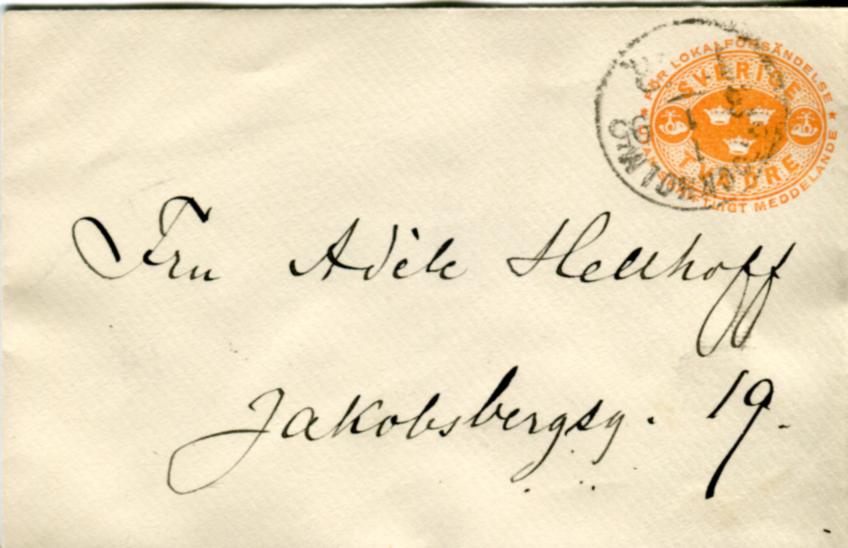 FÖR LOKALFÖRSÄNDELSE
SVERIGE
TVÅ ÖRE
MEDDELANDE
STOCKHOLM
Fru Adèle Hellhoff
Jakobsbergsg. 19.